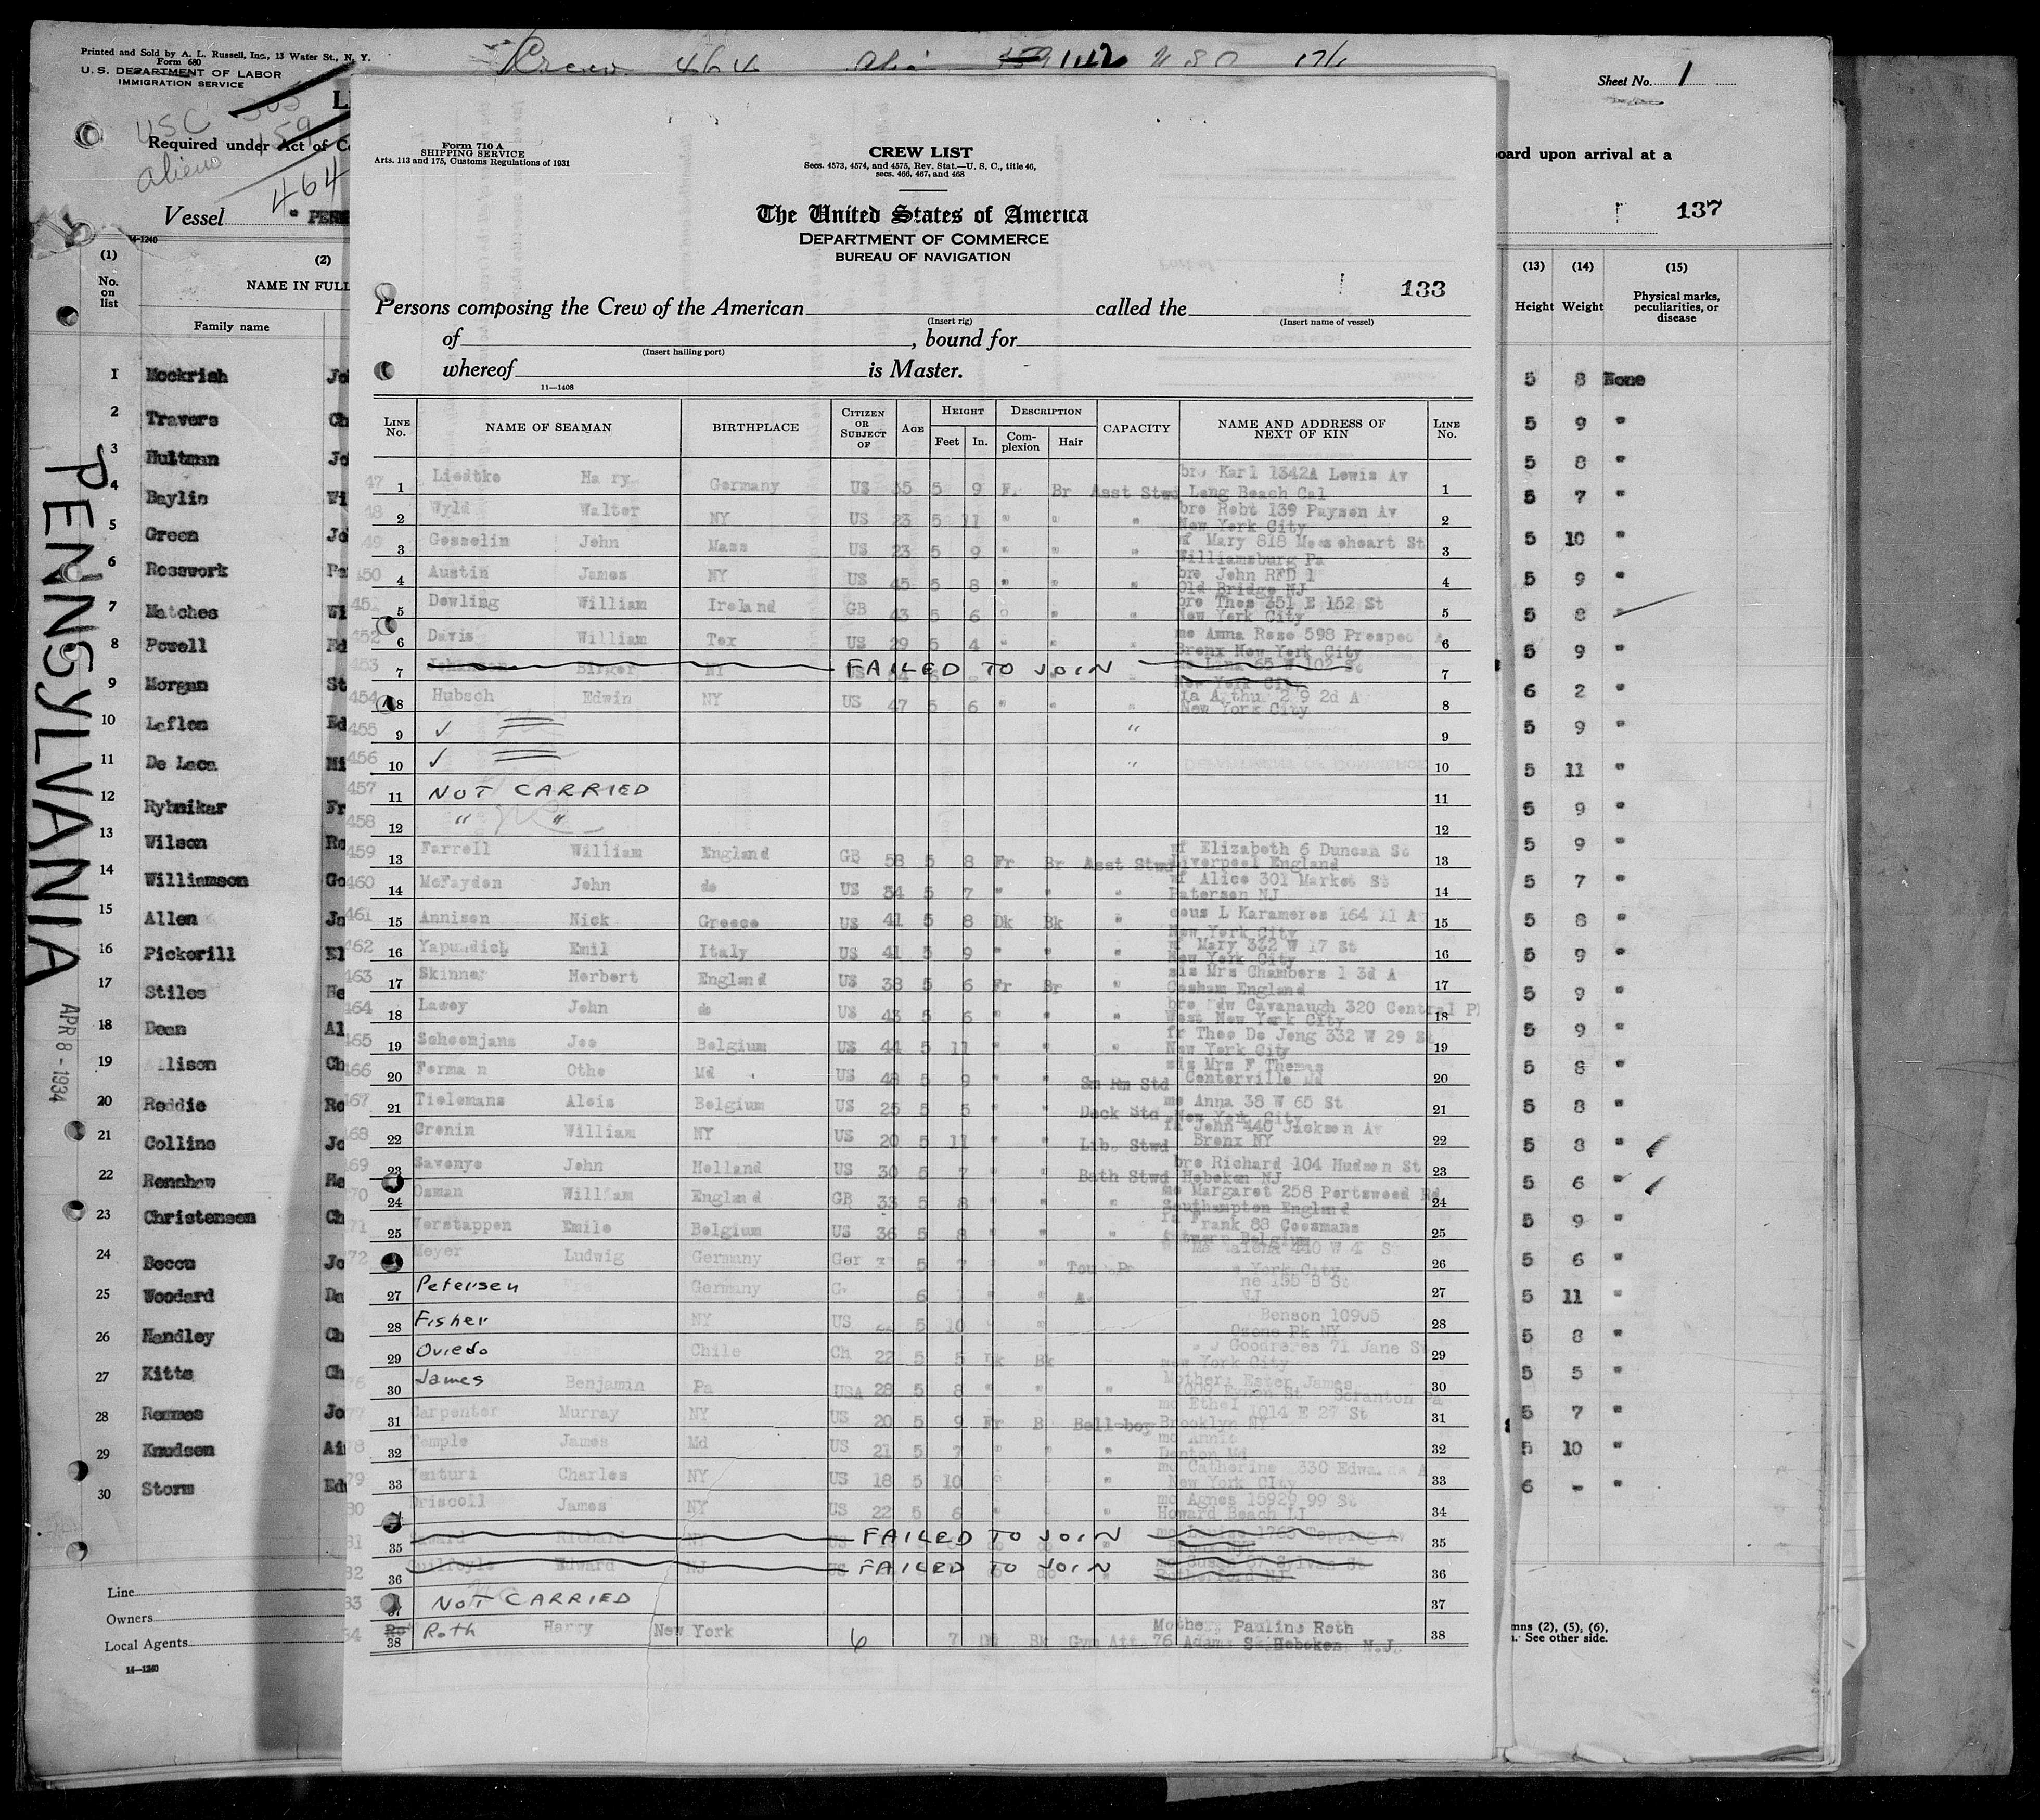 Printed and Sold by A. L. Russell, Inc., 13 Water St., N. Y.
Form 680
U. S. DEPARTMENT OF LABOR
IMMIGRATION SERVICE
Crew 464
Sheet No. 1
USC
159
Aliens
464
Required under Act of C
board upon arrival at a
Vessel
137
14-1240
(1) (2)
No. on list
NAME IN FULL
Family name
(13) (14) (15)
Height Weight Physical marks, peculiarities, or disease
PENNSYLVANIA
APR 8 - 1934
1 Mockrish Jo 5 8 None
2 Travers Ch 5 9 "
3 Hultman Jo 5 8 "
4 Baylis Wi 5 7 "
5 Green Jo 5 10 "
6 Rosswork 5 9 "
7 Matches Wi 5 8 "
8 Powell Ed 5 9 "
9 Morgan St 6 2 "
10 Leflon Ed 5 9 "
11 De Luca Mi 5 11 "
12 Rybnikar Fr 5 9 "
13 Wilson Ro 5 9 "
14 Williamson Go 5 7 "
15 Allen Ja 5 8 "
16 Pickerill El 5 9 "
17 Stiles He 5 9 "
18 Dean Al 5 9 "
19 llison Ch 5 8 "
20 Reddie Ro 5 8 "
21 Collins Jo 5 8 "
22 Renshaw He 5 6 "
23 Christensen Ch 5 9 "
24 Beccu Jo 5 6 "
25 Woodard Da 5 11 "
26 Handley Ch 5 8 "
27 Kitts Ch 5 5 "
28 Remmes Jo 5 7 "
29 Knudsen Ai 5 10 "
30 Storm Ed 6 - "
Line
Owners
Local Agents
14-1240
mns (2), (5), (6),
See other side.
Form 710 A
SHIPPING SERVICE
Arts. 113 and 175, Customs Regulations of 1931
CREW LIST
Secs. 4573, 4574, and 4575, Rev. Stat.—U. S. C., title 46,
secs. 466, 467, and 468
The United States of America
DEPARTMENT OF COMMERCE
BUREAU OF NAVIGATION
133
Persons composing the Crew of the American called the
(Insert rig) (Insert name of vessel)
of , bound for
(Insert hailing port)
whereof is Master.
11—1408
LINE No. NAME OF SEAMAN BIRTHPLACE CITIZEN OR SUBJECT OF AGE HEIGHT Feet In. DESCRIPTION Complexion Hair CAPACITY NAME AND ADDRESS OF NEXT OF KIN LINE No.
47 1 Liedtke Ha ry Germany US 35 5 9 F. Br Asst Stwd bro Karl 1342A Lewis Av Long Beach Cal 1
48 2 Wyld Walter NY US 23 5 11 " " " bro Robt 139 Payson Av New York City 2
49 3 Gosselin John Mass US 23 5 9 " " " wf Mary 818 Mooseheart St Williamsburg Pa 3
450 4 Austin James NY US 45 5 8 " " " bro John RFD 1 Old Bridge NJ 4
45 5 Dowling William Ireland GB 43 5 6 " " bro Thos 351 E 152 St New York City 5
452 6 Davis William Tex US 29 5 4 " " " mo Anna Rose 598 Prospec A Bronx New York City 6
453 7 Birger NY FAILED TO JOIN Lina 65 W 102 St New York City 7
454 8 Hubsch Edwin NY US 47 5 6 " " " Arthu 2 9 2d A New York City 8
455 9 ✓ " 9
456 10 ✓ " 10
457 11 NOT CARRIED 11
458 12 " " 12
459 13 Farrell William England GB 58 5 8 Fr Br Asst Stwd wf Elizabeth 6 Duncan St Liverpool England 13
460 14 McFayden John do US 34 5 7 " " " wf Alice 301 Market St Paterson NJ 14
461 15 Annison Nick Greece US 41 5 8 Dk Bk " cous L Karameros 164 11 Av New York City 15
462 16 Yapundich Emil Italy US 41 5 9 " " " wf Mary 332 W 17 St New York City 16
463 17 Skinner Herbert England US 38 5 6 Fr Br " sis Mrs Chambers 1 3d A Cosham England 17
464 18 Lacey John do US 43 5 6 " " " bro Edw Cavanaugh 320 Central P West New York City 18
465 19 Scheemjans Joe Belgium US 44 5 11 " " " fr Theo De Jong 332 W 29 St New York City 19
466 20 Forma n Otho Md US 48 5 9 " " Sm Rm Std sis Mrs F Thomas Centerville Md 20
467 21 Tielemans Alois Belgium US 25 5 5 " " Deck Std mo Anna 38 W 65 St New York City 21
468 22 Cronin William NY US 20 5 11 " " Lib. Stwd fa John 440 Jackson Av Bronx NY 22
469 23 Savonye John Holland US 30 5 7 " " Bath Stwd bro Richard 104 Hudson St Hoboken NJ 23
70 24 Osman William England GB 33 5 8 " " " mo Margaret 258 Portswood Rd Southampton England 24
71 25 Verstappen Emile Belgium US 36 5 8 " " " fa Frank 88 Coosmans Antwerp Belgium 25
72 Meyer Ludwig Germany Ger 5 7 " " 440 W 4 St York City 26
27 Petersen Germany G 6 " " 155 B St NJ 27
28 Fisher NY US 5 10 " " Benson 10905 Ozone Pk NY 28
29 Oviedo Jose Chile Ch 22 5 5 Dk Bk J Goodreres 71 Jane St New York City 29
76 30 James Benjamin Pa USA 28 5 8 " " " Mother, Ester James 1009 Eynon St Scranton Pa 30
77 31 Carpenter Murray NY US 20 5 9 Fr B Bell-boy mo Ethel 1014 E 27 St Brooklyn NY 31
78 32 Temple James Md US 21 5 7 " " " mo Annie Denton Md 32
79 33 Venturi Charles NY US 18 5 10 " " " mo Catherine 330 Edwa A New York CIty 33
80 Driscoll James NY US 22 5 6 " " " mo Agnes 15929 99 St Howard Beach LI 34
81 35 Richard NY FAILED TO JOIN mo Louise 1765 Topping Av Bronx NYC 35
82 36 Guilfoyle Edward NJ US FAILED TO JOIN mo Susan 37 Sylvan St Rutherford NJ 36
83 37 NOT CARRIED 37
84 38 Roth Harry New York 6 7 Dk Bk Gym Att Mother Pauline Roth 76 Adams St Hoboken, N.J. 38